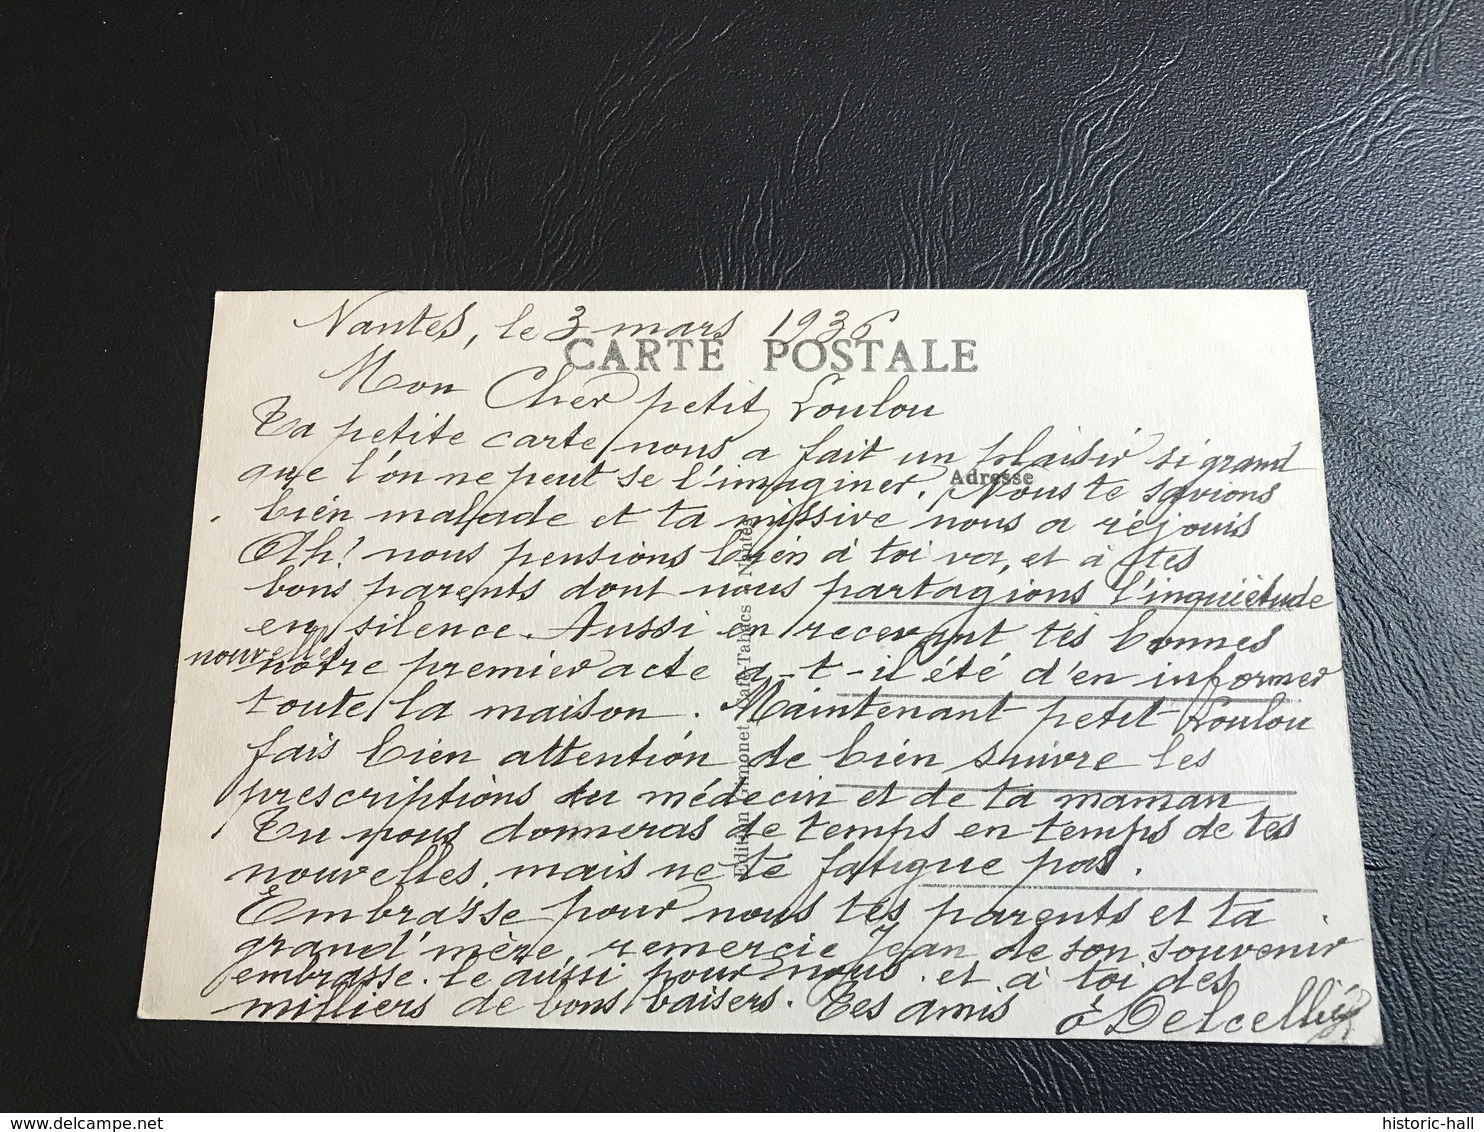 Nantes, le 3 mars 1936
CARTE POSTALE
Mon Cher petit Loulou
Ta petite carte nous a fait un plaisir si grand
que l'on ne peut se l'imaginer. Nous te savions
Adresse
bien malade et ta missive nous a réjouis
Ah! nous pensions bien à toi va, et à tes
bons parents dont nous partagions l'inquiétude
en silence. Aussi en recevant tes bonnes
nouvelles
notre premier acte a-t-il été d'en informer
toute la maison. Maintenant petit Loulou
fais bien attention de bien suivre les
prescriptions du médecin et de ta maman
Tu nous donneras de temps en temps de tes
nouvelles, mais ne te fatigue pas.
Embrasse pour nous tes parents et ta
grand'mère, remercie Jean de son souvenir
embrasse-le aussi pour nous. et à toi des
milliers de bons baisers. Tes amis
Edition Gimonet Café-Tabacs Nantes
delcampe.net
historic-hall